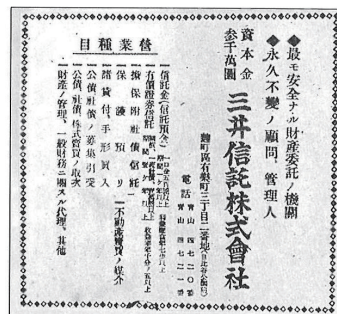 ◆最モ安全ナル財産委託ノ機關
◆永久不變ノ顧問、管理人
資本金
參千萬圓
三井信託株式會社
麹町區有樂町一丁目一番地(日比谷公園前)
電話
青山四七二〇番
青山四七二一番
營業種目
一信託金(信託預金)
一有價證券信託
一擔保附社債信託
一保護預リ
一不動產賣買ノ媒介
一諸貸付、手形買入
一公債社債ノ募集引受
一公債、社債、株式賣買ノ取次
一財產ノ管理、一般財務ニ關スル代理、其他